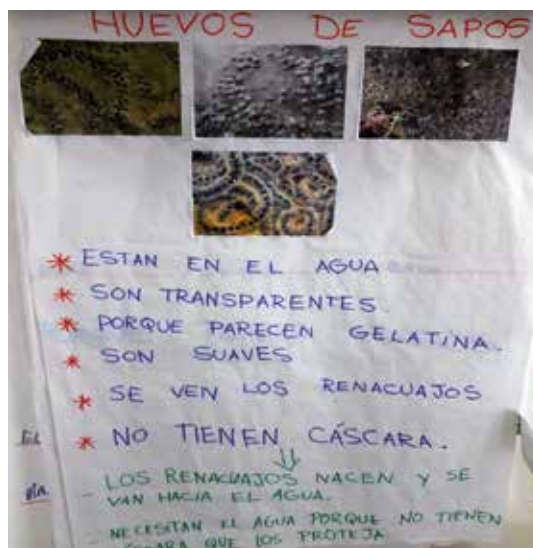 HUEVOS DE SAPOS
* ESTAN EN EL AGUA
* SON TRANSPARENTES.
* PORQUE PARECEN GELATINA.
* SON SUAVES
* SE VEN LOS RENACUAJOS
* NO TIENEN CÁSCARA.
- LOS RENACUAJOS NACEN Y SE
VAN HACIA EL AGUA.
- NECESITAN EL AGUA PORQUE NO TIENEN
CÁSCARA QUE LOS PROTEJA